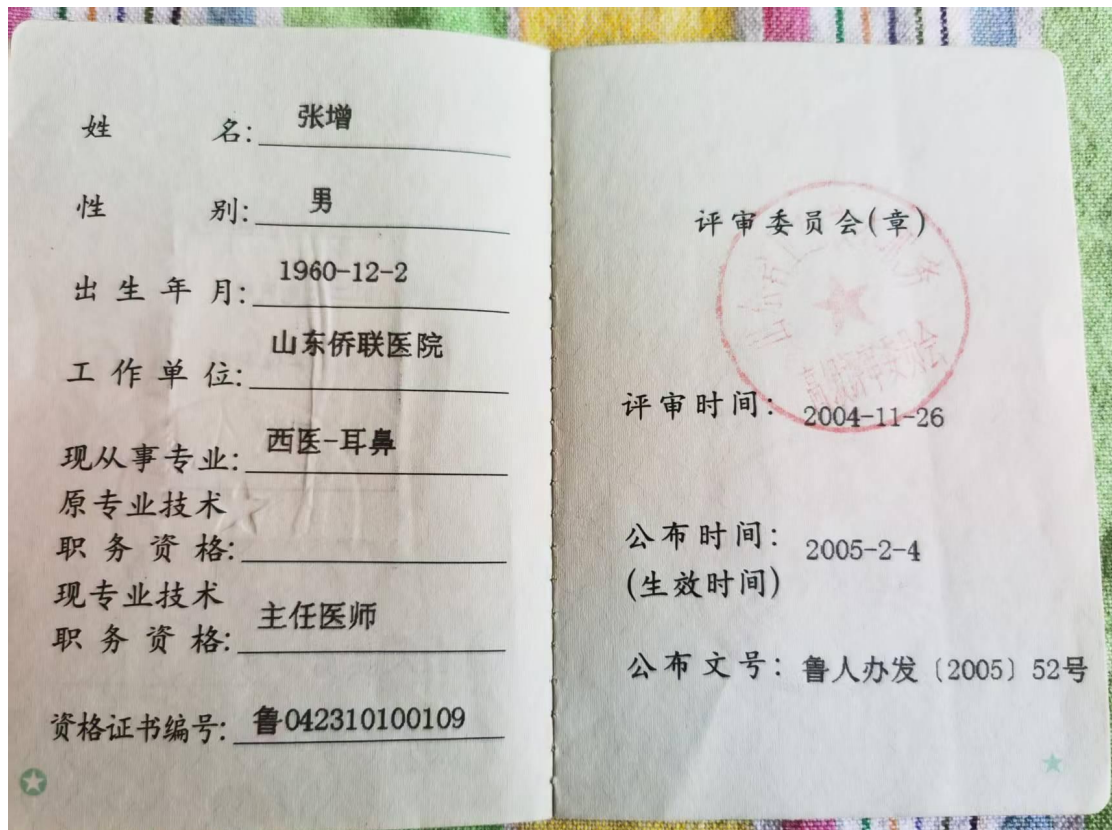 姓 名: 张增
性 别: 男
出生年月: 1960-12-2
工作单位: 山东侨联医院
现从事专业: 西医-耳鼻
原专业技术
职务资格:
现专业技术
职务资格: 主任医师
资格证书编号: 鲁042310100109
评审委员会(章)
高级评审委员会
评审时间: 2004-11-26
公布时间: 2005-2-4
(生效时间)
公布文号: 鲁人办发〔2005〕52号